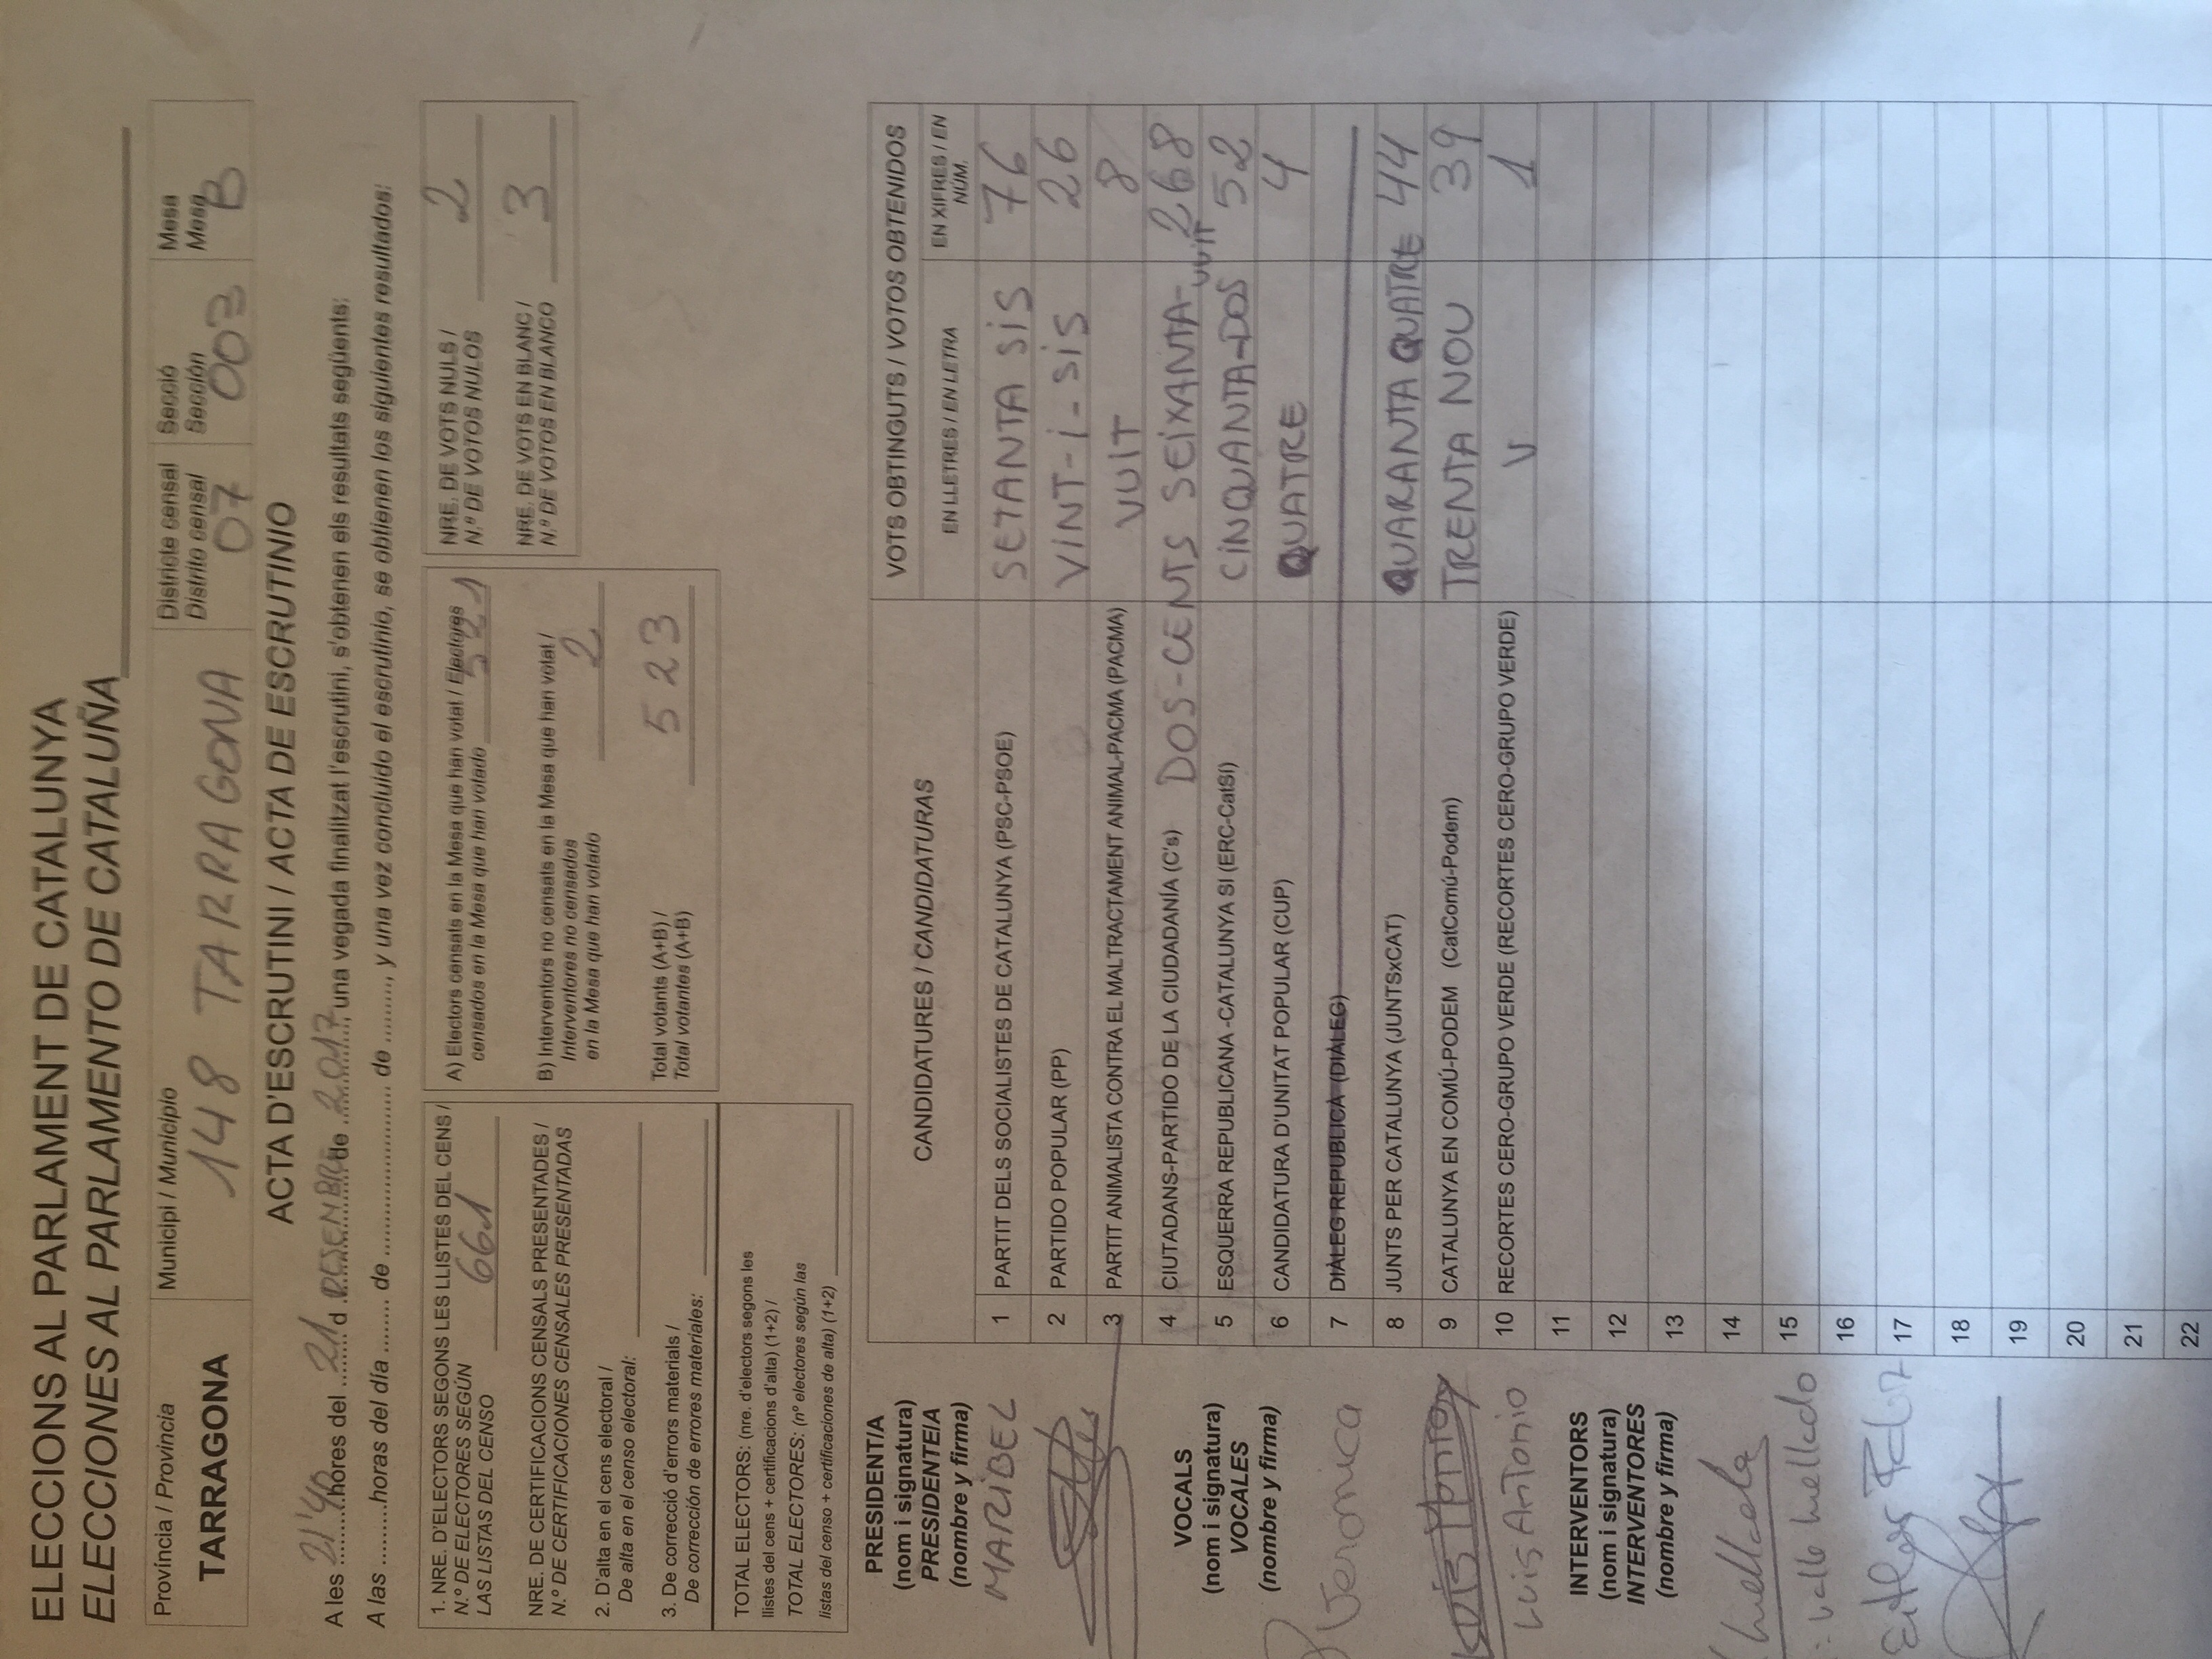 ELECCIONS AL PARLAMENT DE CATALUNYA
ELECCIONES AL PARLAMENTO DE CATALUÑA
Província / Provincia
TARRAGONA
Municipi / Municipio
148 TARRAGONA
Districte censal
Distrito censal
07
Secció
Sección
003
Mesa
Mesa
B
ACTA D'ESCRUTINI / ACTA DE ESCRUTINIO
A les 21'40 hores del 21 d DESEMBRE de 2017, una vegada finalitzat l'escrutini, s'obtenen els resultats següents:
A las .........horas del día ........ de ........................ de ........., y una vez concluido el escrutinio, se obtienen los siguientes resultados:
1. NRE. D'ELECTORS SEGONS LES LLISTES DEL CENS /
N.º DE ELECTORES SEGÚN
LAS LISTAS DEL CENSO 661
NRE. DE CERTIFICACIONS CENSALS PRESENTADES /
N.º DE CERTIFICACIONES CENSALES PRESENTADAS
2. D'alta en el cens electoral /
De alta en el censo electoral:
3. De correcció d'errors materials /
De corrección de errores materiales:
TOTAL ELECTORS: (nre. d'electors segons les
llistes del cens + certificacions d'alta) (1+2) /
TOTAL ELECTORES: (nº electores según las
listas del censo + certificaciones de alta) (1+2)
A) Electors censats en la Mesa que han votat / Electores
censados en la Mesa que han votado 521
B) Interventors no censats en la Mesa que han votat /
Interventores no censados
en la Mesa que han votado 2
Total votants (A+B) /
Total votantes (A+B) 523
NRE. DE VOTS NULS /
N.º DE VOTOS NULOS 2
NRE. DE VOTS EN BLANC /
N.º DE VOTOS EN BLANCO 3
PRESIDENT/A
(nom i signatura)
PRESIDENTE/A
(nombre y firma)
MARIBEL
VOCALS
(nom i signatura)
VOCALES
(nombre y firma)
Veronica
Luis Antonio
INTERVENTORS
(nom i signatura)
INTERVENTORES
(nombre y firma)
Mellado
Valle Mellado
CANDIDATURES / CANDIDATURAS
VOTS OBTINGUTS / VOTOS OBTENIDOS
EN LLETRES / EN LETRA
EN XIFRES / EN
NÚM.
1 PARTIT DELS SOCIALISTES DE CATALUNYA (PSC-PSOE) SETANTA SIS 76
2 PARTIDO POPULAR (PP) VINT-I-SIS 26
3 PARTIT ANIMALISTA CONTRA EL MALTRACTAMENT ANIMAL-PACMA (PACMA) VUIT 8
4 CIUTADANS-PARTIDO DE LA CIUDADANÍA (C's) DOS-CENTS SEIXANTA-VUIT 268
5 ESQUERRA REPUBLICANA -CATALUNYA SI (ERC-CatSí) CINQUANTA-DOS 52
6 CANDIDATURA D'UNITAT POPULAR (CUP) QUATRE 4
7 DIÀLEG REPUBLICÀ (DIÀLEG)
8 JUNTS PER CATALUNYA (JUNTSxCAT) QUARANTA QUATRE 44
9 CATALUNYA EN COMÚ-PODEM (CatComú-Podem) TRENTA NOU 39
10 RECORTES CERO-GRUPO VERDE (RECORTES CERO-GRUPO VERDE) U 1
11
12
13
14
15
16
17
18
19
20
21
22